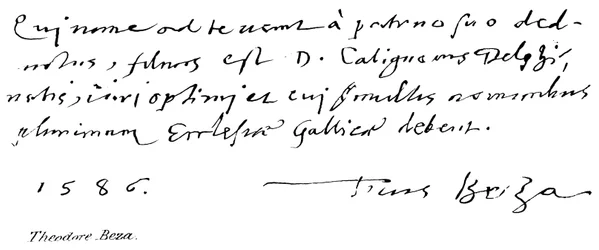 Qui nunc ad te venit à patruo suo ded-
, filius est D. Calignonus Delphi,
natis, viri optimi et cui multis nominibus
plurimum Ecclesiæ Gallicæ debent.
1586. Tuus Beza
Theodore Beza.